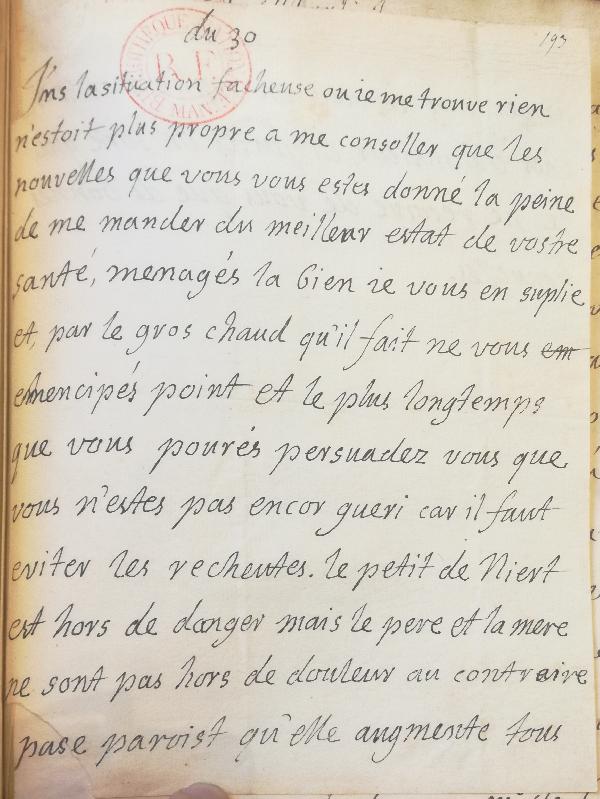 du 30
193
Dns la situation facheuse ou ie me trouve rien
n'estoit plus propre a me consoller que les
nouvelles que vous vous estes donné la peine
de me mander du meilleur estat de vostre
santé, menagés la bien ie vous en suplie
et, par le gros chaud qu'il fait ne vous em
emencipés point et le plus longtemps
que vous pourés persuadez vous que
vous n'estes pas encor gueri car il faut
eviter les recheutes. le petit de Niert
est hors de danger mais le pere et la mere
ne sont pas hors de douleur au contraire
paroist qu'elle augmente tous